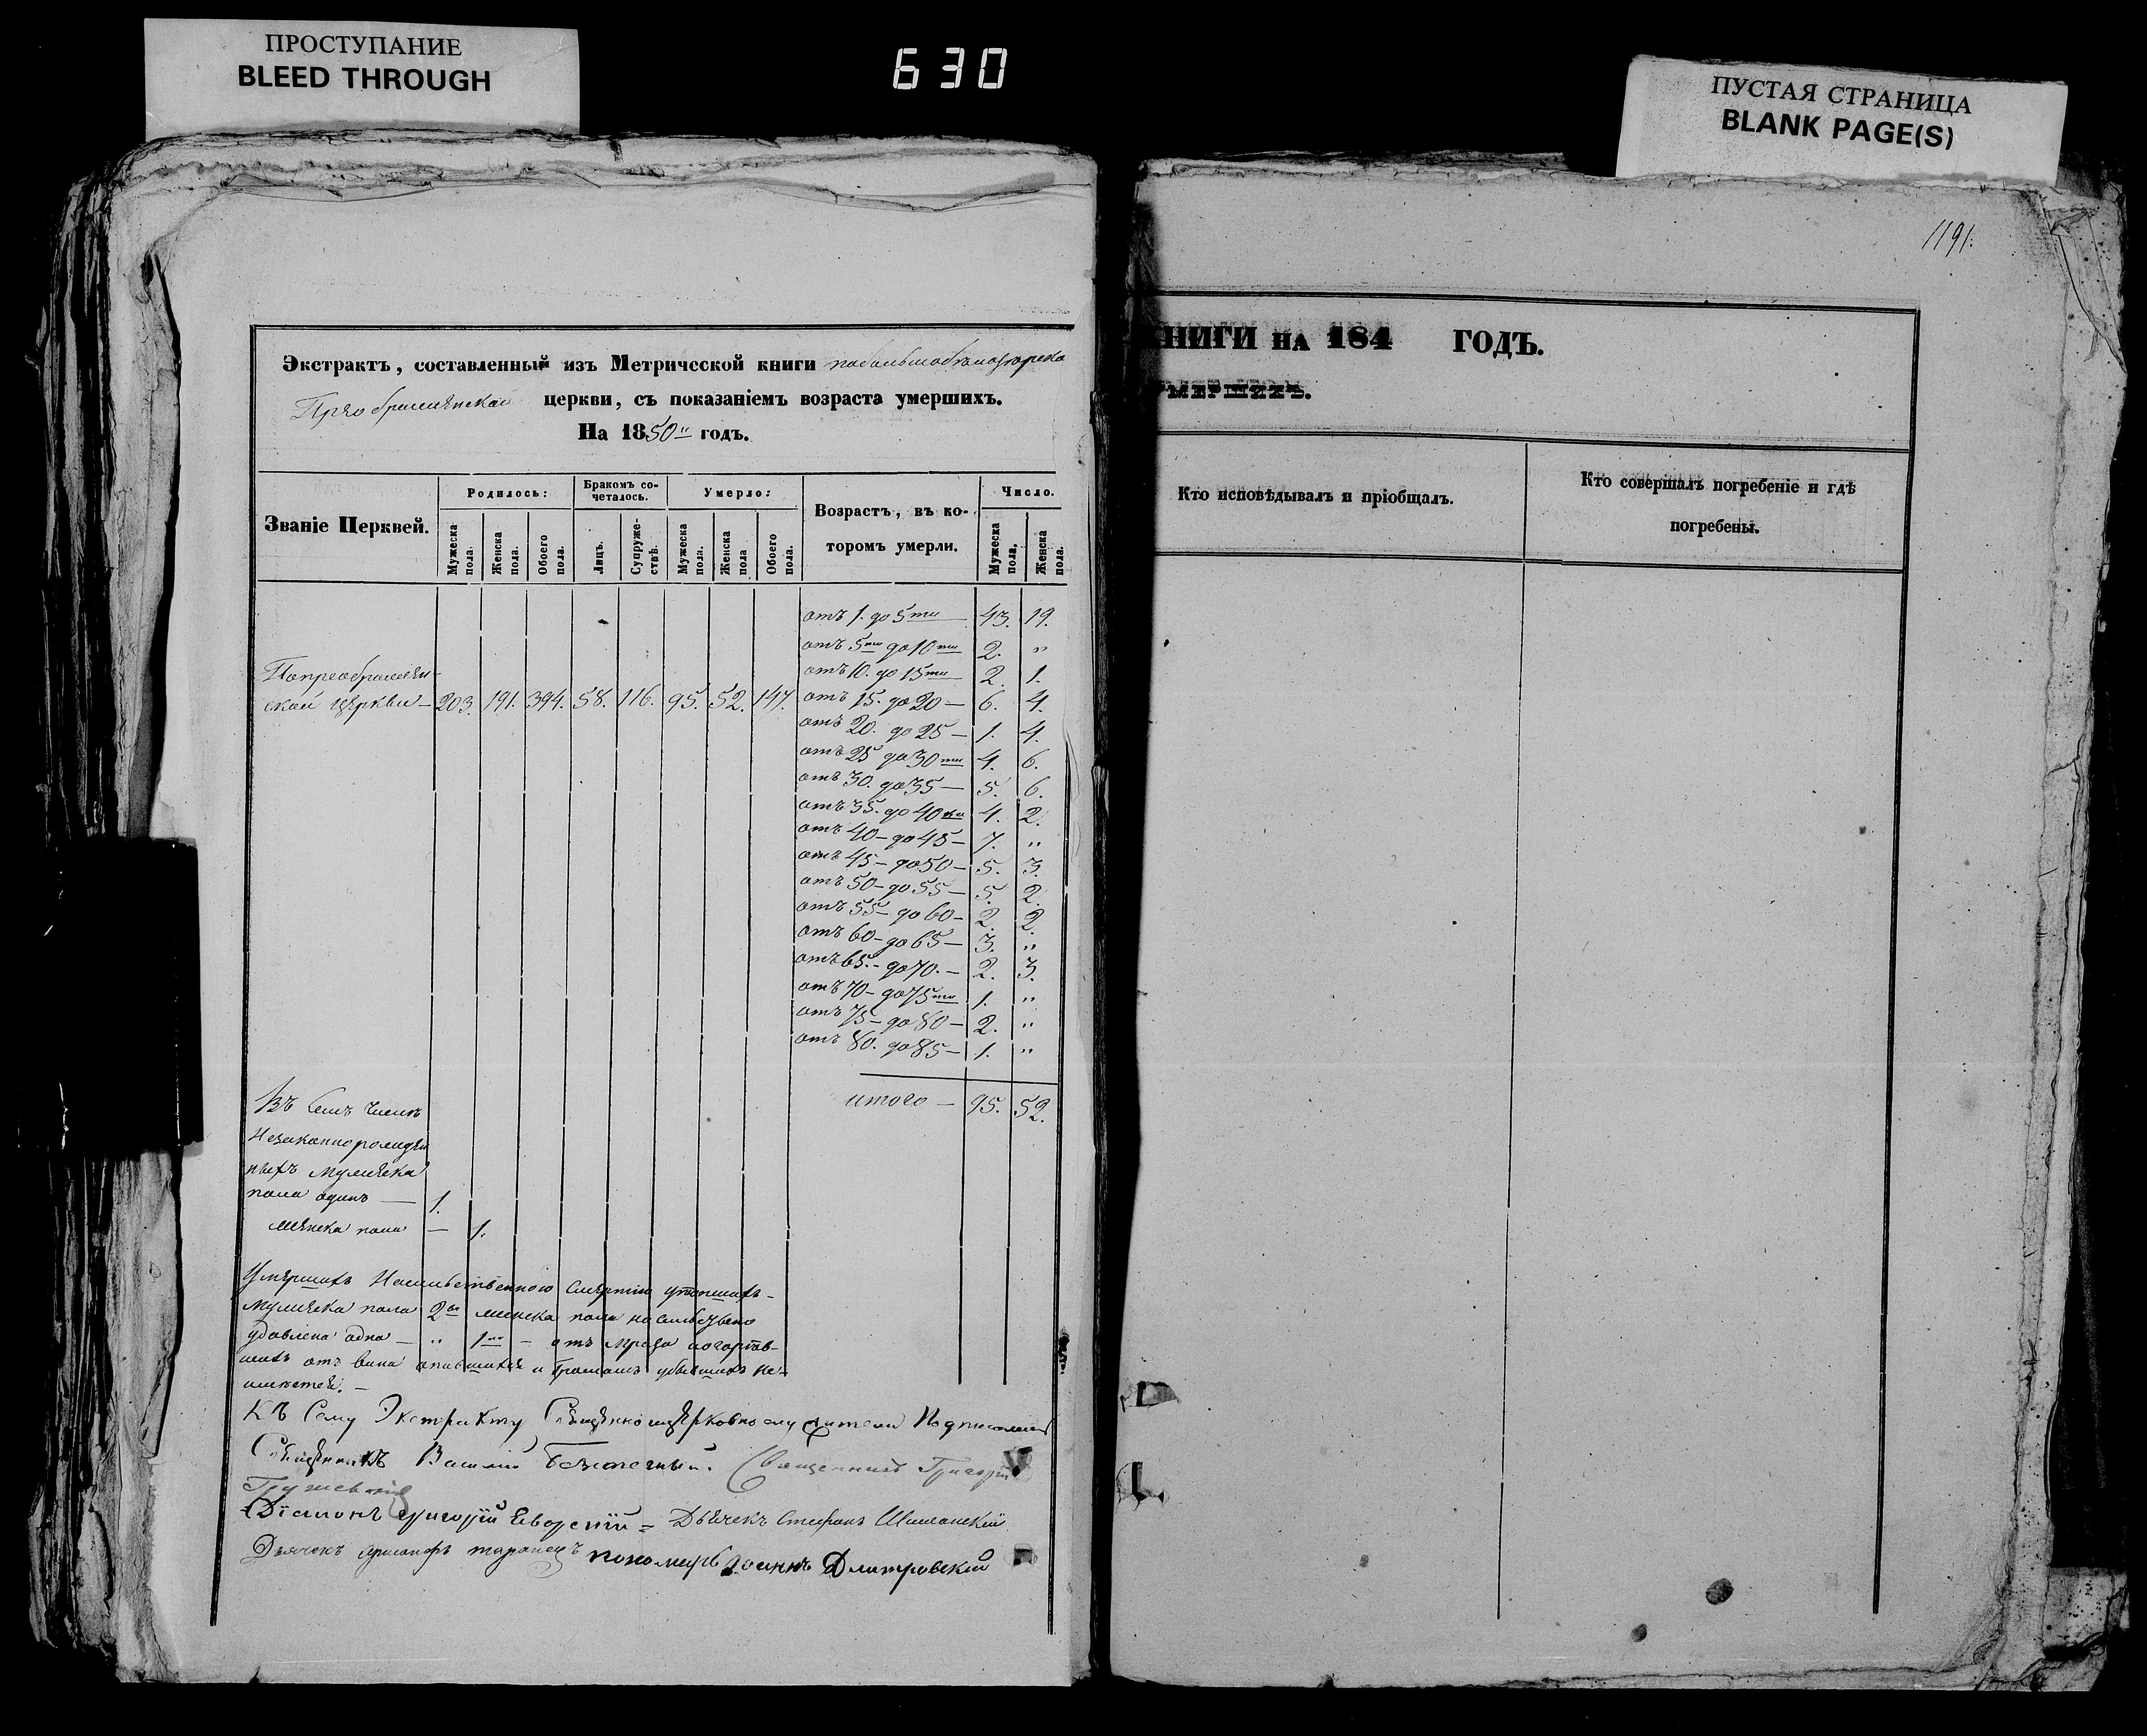 ПРОСТУПАНИЕ
BLEED THROUGH
630
ПУСТАЯ СТРАНИЦА
BLANK PAGE(S)
Экстрактъ, составленный изъ Метрической книги
церкви, съ показаніемъ возраста умершихъ.
На 1850 годъ.
Званіе Церквей.
Родилось:
Мужеска пола.
Женска пола.
Обоего пола.
Бракомъ сочеталось.
Лицъ.
Супружествъ.
Умерло:
Мужеска пола.
Женска пола
Обоего пола.
Возрастъ, въ которомъ умерли.
Число.
Мужеска пола.
Женска пола.
отъ 1. до 5ти 43. 19.
отъ 5ти до 10ти 2. "
отъ 10. до 15ти 2. 1.
ской церкви — 203. 191. 394. 58. 116. 95. 52. 147. отъ 15. до 20 — 6. 4.
отъ 20. до 25 — 1. 4.
отъ 25 до 30ти 4. 6.
отъ 30. до 35 — 5. 6.
отъ 35. до 40ка 4. 2.
отъ 40 — до 45 — 7. "
отъ 45 — до 50 — 5. 3.
отъ 50 — до 55 — 5. 2.
отъ 55 — до 60 — 2. 2.
отъ 60 — до 65 — 3. "
отъ 65. — до 70. — 2. 3.
отъ 70 — до 75ти 1. "
отъ 75 — до 80 — 2. "
отъ 80. до 85 — 1. "
итого — 95. 52.
Въ семъ числѣ
незаконнорожден
ныхъ мужеска
пола одинъ — 1.
женска пола — 1.
Умершихъ насильственною смертію утопшихъ —
мужеска пола 2 женска пола
удавлена одна — " 1 — отъ мраза
отъ вина опившихся и громомъ убывшихъ не
имѣется. —
Къ сему Экстракту
Священникъ Василій Священникъ Григорій
Діаконъ Григорій Дьячекъ Стефанъ
Дьячекъ пономарь Іоаннъ Дмитровскій
1191.
НИГИ НА 184 ГОДЪ.
МЕРШИХЪ.
Кто исповѣдывалъ и пріобщалъ.
Кто совершалъ погребеніе и гдѣ
погребены.